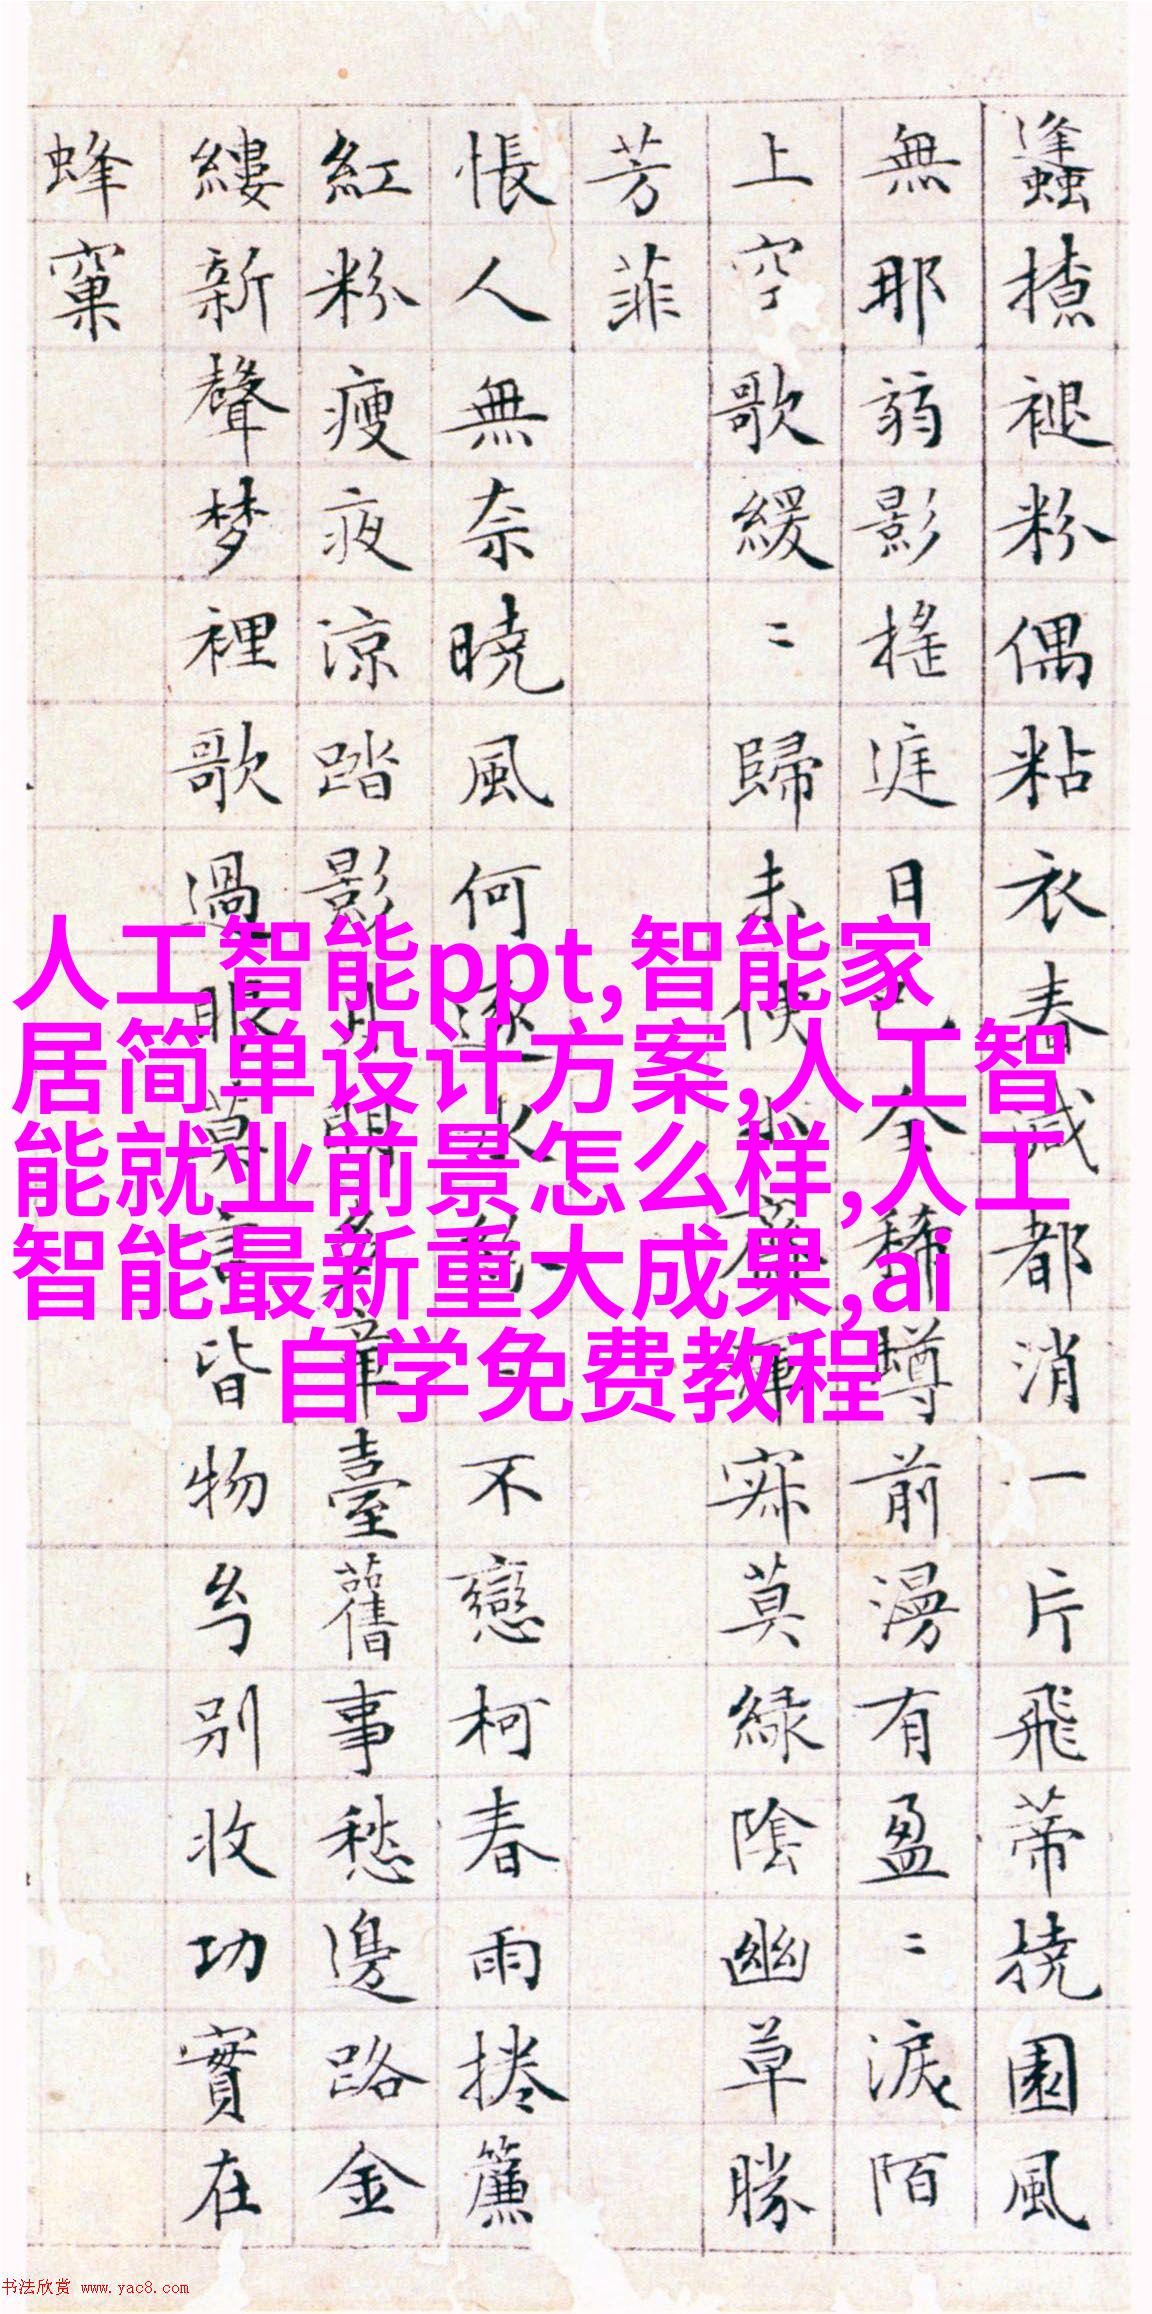 蠭撩褪粉偶粘衣春減都消一片飛蒂撓園風
無那弱影搖庭日已全稀樽前漫有盈〻淚陌
上空歌緩〻歸未便小齋渾寂莫綠陰幽草勝
芳菲
悵人無奈曉風何逐水紛〻不戀柯春雨捲簾
紅粉瘦夜涼踏影月明多章臺舊事愁邊路金
縷新聲梦裡歌過眼莫言皆物幻別收功實在
蜂窠
人工智能ppt,智能家
居简单设计方案,人工智
能就业前景怎么样,人工
智能最新重大成果,ai
自学免费教程
书法欣赏 www.yac8.com